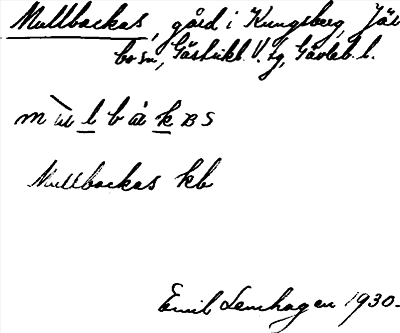 Mullbackas, gård i Kungsberg, Jär
bo sn, Gästrikl. V. tg, Gävleb. l.
Mullbackas kb
Emil Lenhagen 1930.